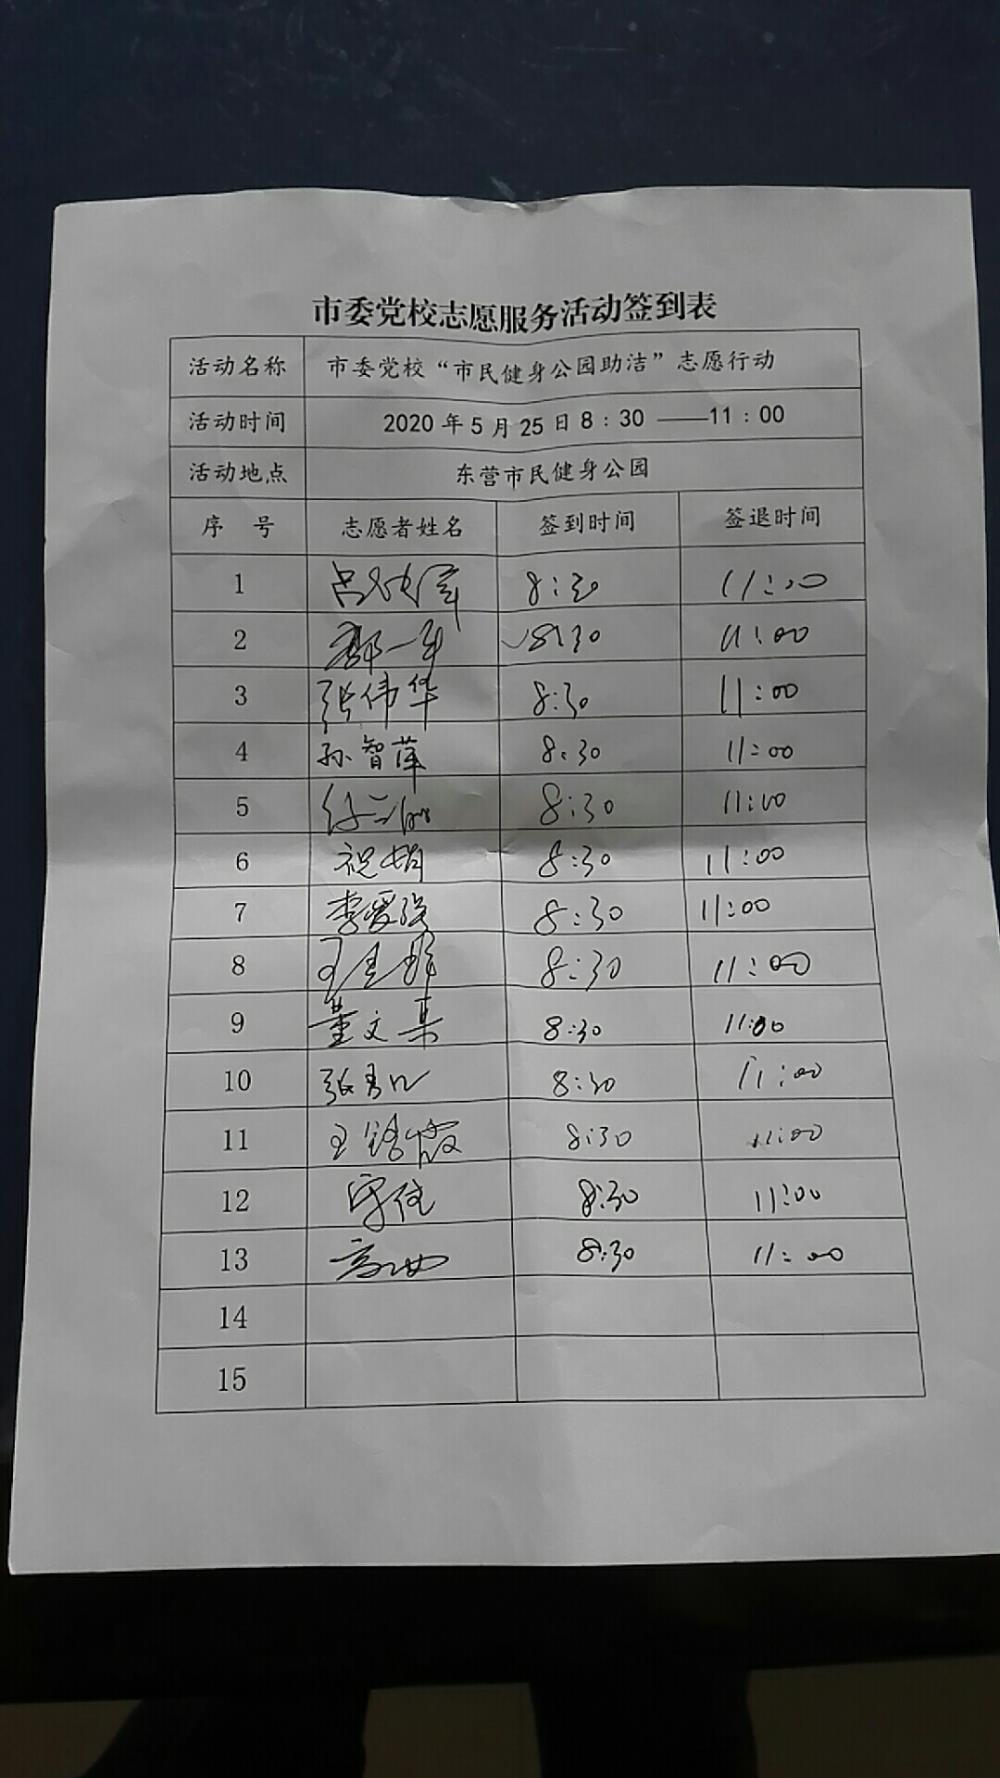 市委党校志愿服务活动签到表
活动名称 市委党校“市民健身公园助洁”志愿行动
活动时间 2020年5月25日8:30——11:00
活动地点 东营市民健身公园
序 号 志愿者姓名 签到时间 签退时间
1 8:30 11:00
2 8:30 11:00
3 张伟华 8:30 11:00
4 孙智萍 8:30 11:00
5 8:30 11:00
6 祝娟 8:30 11:00
7 李爱强 8:30 11:00
8 8:30 11:00
9 董文集 8:30 11:00
10 8:30 11:00
11 8:30 11:00
12 8:30 11:00
13 8:30 11:00
14
15